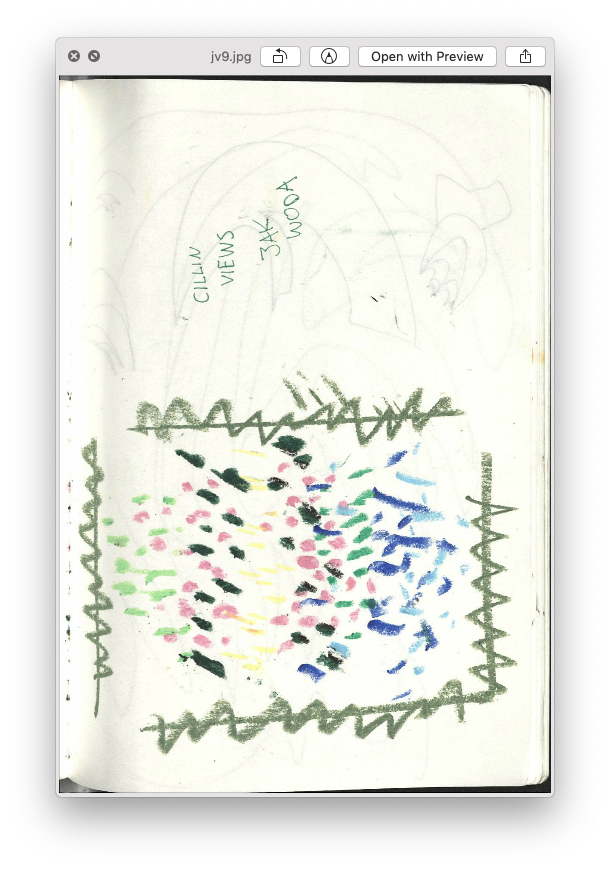 jv9.jpg
Open with Preview
CILLIN
VIEWS
JAK
WODA